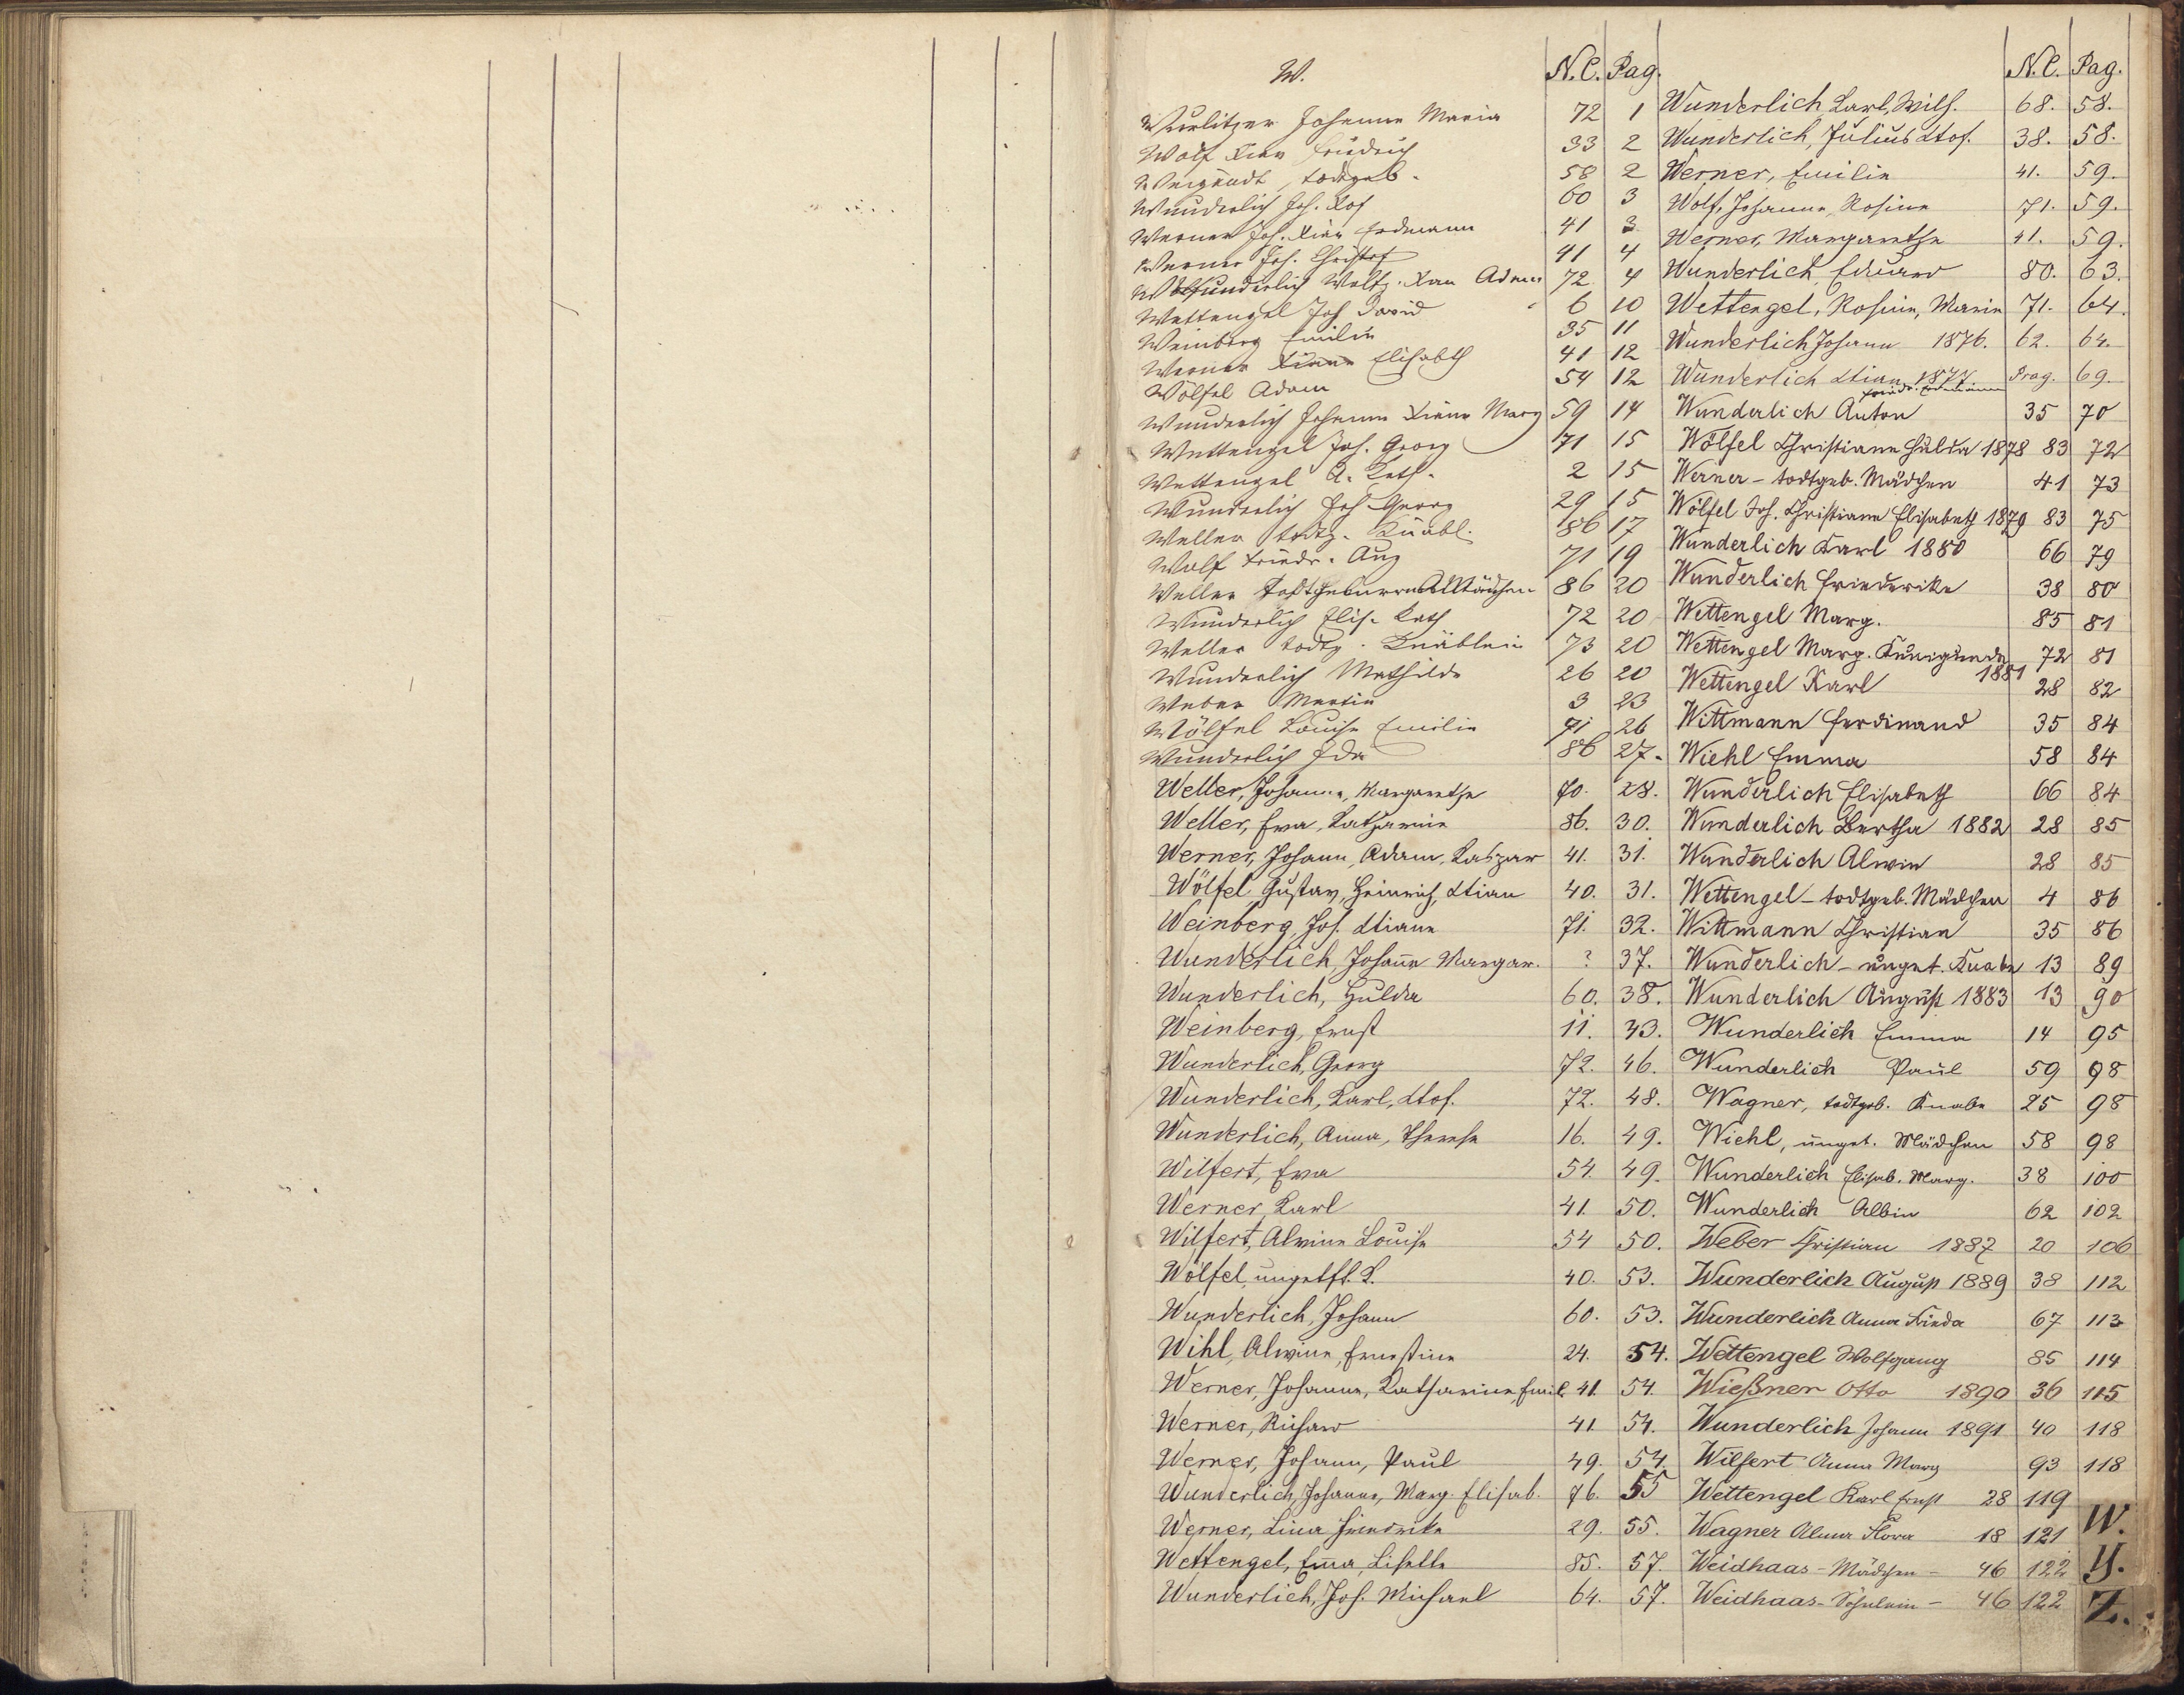 W. N.C. Pag.
Wurlitzer Johanne Maria 72 1
Wolf Friedrich 33 2
Weigandt, todtgeb. 58 2
Wunderlich Joh. Xof 60 3
Werner Joh. Xian Erdmann 41 3
Werner Joh. Christof 41 4
Wunderlich Wolfg. Adam 72 4
Wettengel Joh David 6 10
Weinberg Emilie 35 11
Werner Elisabeth 41 12
Wölfel Adam 54 12
Wunderlich Johanne Marg 59 14
Wettengel Joh. Georg 71 15
Wettengel Kath. 2 15
Wunderlich Joh Georg 29 15
Weller todtg. Knäbl. 86 17
Wolf Friedr. Aug 71 19
Weller Mädchen 86 20
Wunderlich Elis. Kath 72 20
Weller todtg. Knäblein 73 20
Wunderlich Mathilde 26 20
Weber Martin 3 23
Wölfel Louise Emilie 71 26
Wunderlich Ida 86 27.
Weller, Johanna, Margarethe 70. 28.
Weller, Eva, Katharina 86. 30.
Werner, Johann, Adam, Kaspar 41. 31.
Wölfel Gustav, Heinrich, Xtian 40. 31.
Weinberg, Joh. Xtiane 71. 32.
Wunderlich, Johanne Margar. ? 37.
Wunderlich, Hulda 60. 38.
Weinberg, Ernst 11. 43.
Wunderlich, Georg 72. 46.
Wunderlich, Karl, Xtof. 72. 48.
Wunderlich, Anna, Therese 16. 49.
Wilfert, Eva 54. 49.
Werner, Karl 41. 50.
Wilfert, Alwine Louise 54 50.
Wölfel, ungetft. K. 40. 53.
Wunderlich, Johann 60. 53.
Wihl, Alwine, Ernestine 24. 54.
Werner, Johanna, Katharina, Emil. 41. 54.
Werner, Richard 41. 54.
Werner, Johann, Paul 49. 54.
Wunderlich, Johanne, Marg. Elisab. 76. 55
Werner, Lina Friedrike 29. 55.
Wettengel, Ema, Lisette 85. 57.
Wunderlich, Joh. Michael 64. 57.
N.C. Pag.
Wunderlich, Karl, Wilh. 68. 58.
Wunderlich, Julius Xtof. 38. 58.
Werner, Emilie 41. 59.
Wolf, Johanna, Rosine 71. 59.
Werner, Margarethe 41. 59.
Wunderlich, Eduard 80. 63.
Wettengel, Rosine, Marie 71. 64.
Wunderlich Johann 1876. 62. 64.
Wunderlich Xtian 1877 Prag. 69.
Friedr. Erdmann
Wunderlich Anton 35 70
Wölfel Christiane Hulda 1878 83 72
Werner - todtgeb. Mädchen 41 73
Wölfel Joh. Christiane Elisabeth 1879 83 75
Wunderlich Karl 1880 66 79
Wunderlich Friederike 38 80
Wettengel Marg. 85 81
Wettengel Marg. Kunigunde 72 81
1881
Wettengel Karl 28 82
Wittmann Ferdinand 35 84
Wiehl Emma 58 84
Wunderlich Elisabeth 66 84
Wunderlich Bertha 1882 28 85
Wunderlich Alwin 28 85
Wettengel - todtgeb. Mädchen 4 86
Wittmann Christian 35 86
Wunderlich - unget. Knabe 13 89
Wunderlich August 1883 13 90
Wunderlich Emma 14 95
Wunderlich Paul 59 98
Wagner, todtgeb. Knabe 25 98
Wiehl, unget. Mädchen 58 98
Wunderlich Elisab. Marg. 38 100
Wunderlich Albin 62 102
Weber Christian 1887 20 106
Wunderlich August 1889 38 112
Wunderlich Anna Frieda 67 113
Wettengel Wolfgang 85 114
Wießner Otto 1890 36 115
Wunderlich Johann 1891 40 118
Wilfert Anna Marg 93 118
Wettengel Karl Ernst 28 119
Wagner Alma Flora 18 121
Weidhaas - Mädchen - 46 122
Weidhaas - Söhnlein - 46 122
W.
Y.
Z.